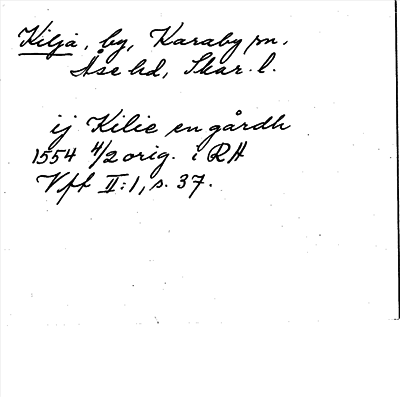 Kilja, by, Karaby sn,
Åse hd, Skar. l.
ij Kilie en gårdh
1554 4/2 orig. i RA
Vft II:1, s. 37.